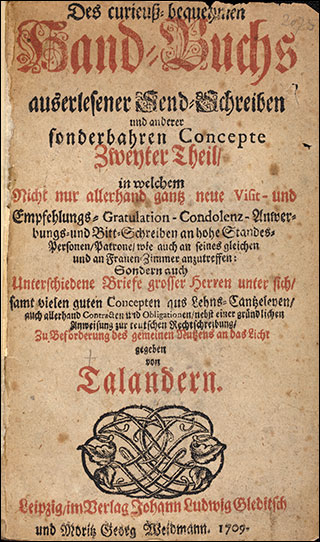 Des curieuß-bequehmen
Hand-Buchs
auserlesener Send-Schreiben
und anderer
sonderbahren Concepte
Zweyter Theil/
in welchem
Nicht nur allerhand gantz neue Visit- und
Empfehlungs- Gratulation- Condolenz- Anwer-
bungs- und Bitt-Schreiben an hohe Standes-
Personen/Patrone/ wie auch an seines gleichen
und an Frauen-Zimmer anzutreffen:
Sondern auch
Unterschiedene Briefe grosser Herren unter sich/
samt vielen guten Concepten aus Lehns-Cantzeleyen/
auch allerhand Contracten und Obligationen/ nebst einer gründlichen
Anweisung zur teutschen Rechtschreibung/
Zu Beförderung des gemeinen Nutzens an das Licht
gegeben
von
Talandern.
Leipzig/im Verlag Johann Ludwig Gleditsch
und Moritz Georg Weidmann. 1709.